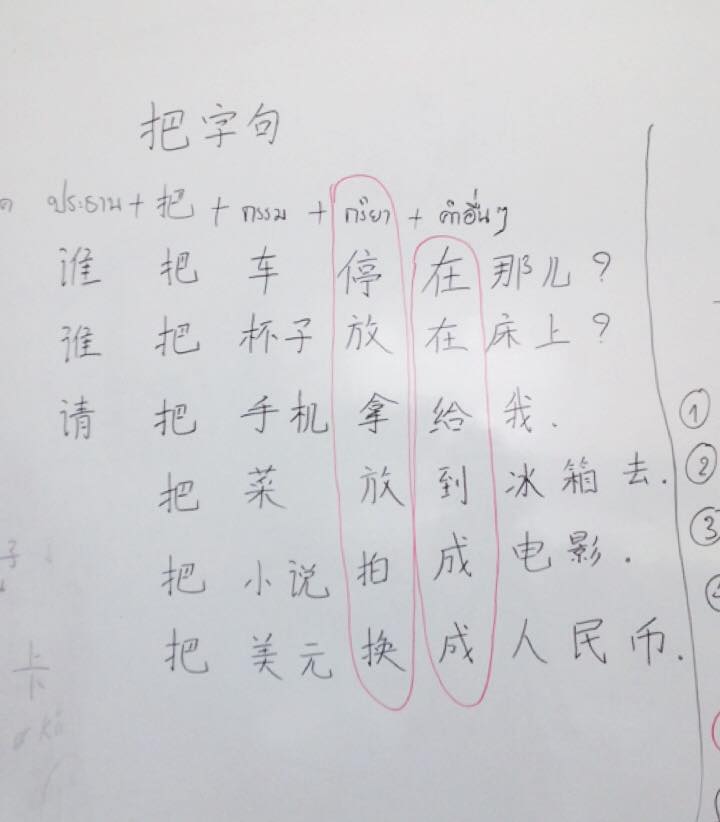 把字句
ประธาน + 把 + กรรม + กริยา + คำอื่นๆ
谁 把 车 停 在 那儿?
谁 把 杯子 放 在 床上?
请 把 手机 拿 给 我.
把 菜 放 到 冰箱去.
把 小说 拍 成 电影.
把 美元 换 成 人民币.
①
②
③